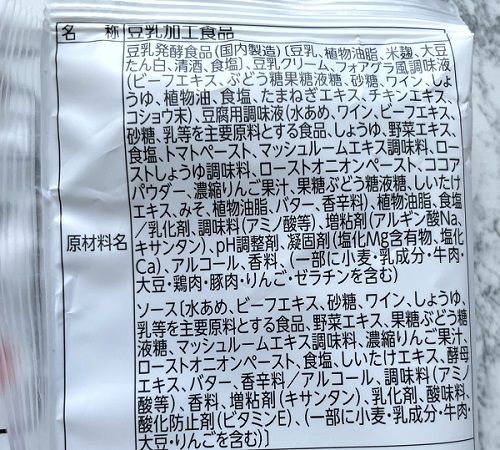 名 称 豆乳加工食品
豆乳発酵食品(国内製造)〔豆乳、植物油脂、米麹、大豆
たん白、清酒、食塩〕、豆乳クリーム、フォアグラ風調味液
(ビーフエキス、ぶどう糖果糖液糖、砂糖、ワイン、しょ
うゆ、植物油、食塩、たまねぎエキス、チキンエキス、
コショウ末)、豆腐用調味液(水あめ、ワイン、ビーフエキス、
砂糖、乳等を主要原料とする食品、しょうゆ、野菜エキス、
食塩、トマトペースト、マッシュルームエキス調味料、ロー
ストしょうゆ調味料、ローストオニオンペースト、ココア
パウダー、濃縮りんご果汁、果糖ぶどう糖液糖、しいたけ
エキス、みそ、植物油脂、バター、香辛料)、植物油脂、食塩
／乳化剤、調味料(アミノ酸等)、増粘剤(アルギン酸Na、
原材料名 キサンタン)、pH調整剤、凝固剤(塩化Mg含有物、塩化
Ca)、アルコール、香料、(一部に小麦・乳成分・牛肉・
大豆・鶏肉・豚肉・りんご・ゼラチンを含む)
ソース〔水あめ、ビーフエキス、砂糖、ワイン、しょうゆ、
乳等を主要原料とする食品、野菜エキス、果糖ぶどう糖
液糖、マッシュルームエキス調味料、濃縮りんご果汁、
ローストオニオンペースト、食塩、しいたけエキス、酵母
エキス、バター、香辛料／アルコール、調味料(アミノ
酸等)、香料、増粘剤(キサンタン)、乳化剤、酸味料、
酸化防止剤(ビタミンE)、(一部に小麦・乳成分・牛肉・
大豆・りんごを含む)〕